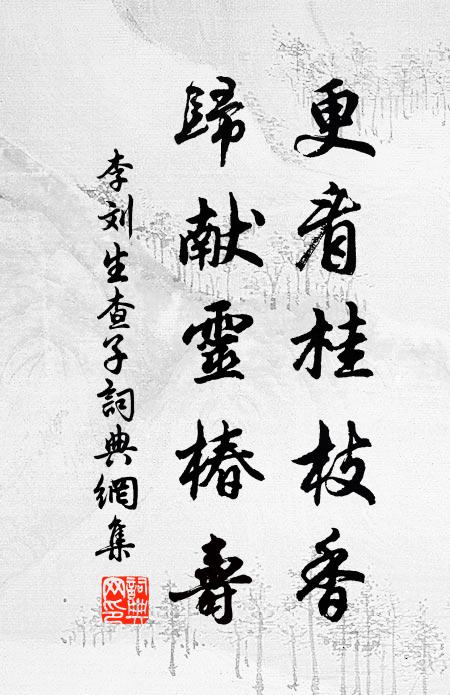 更看桂枝香
歸献靈椿壽
李刘生查子詞典網集